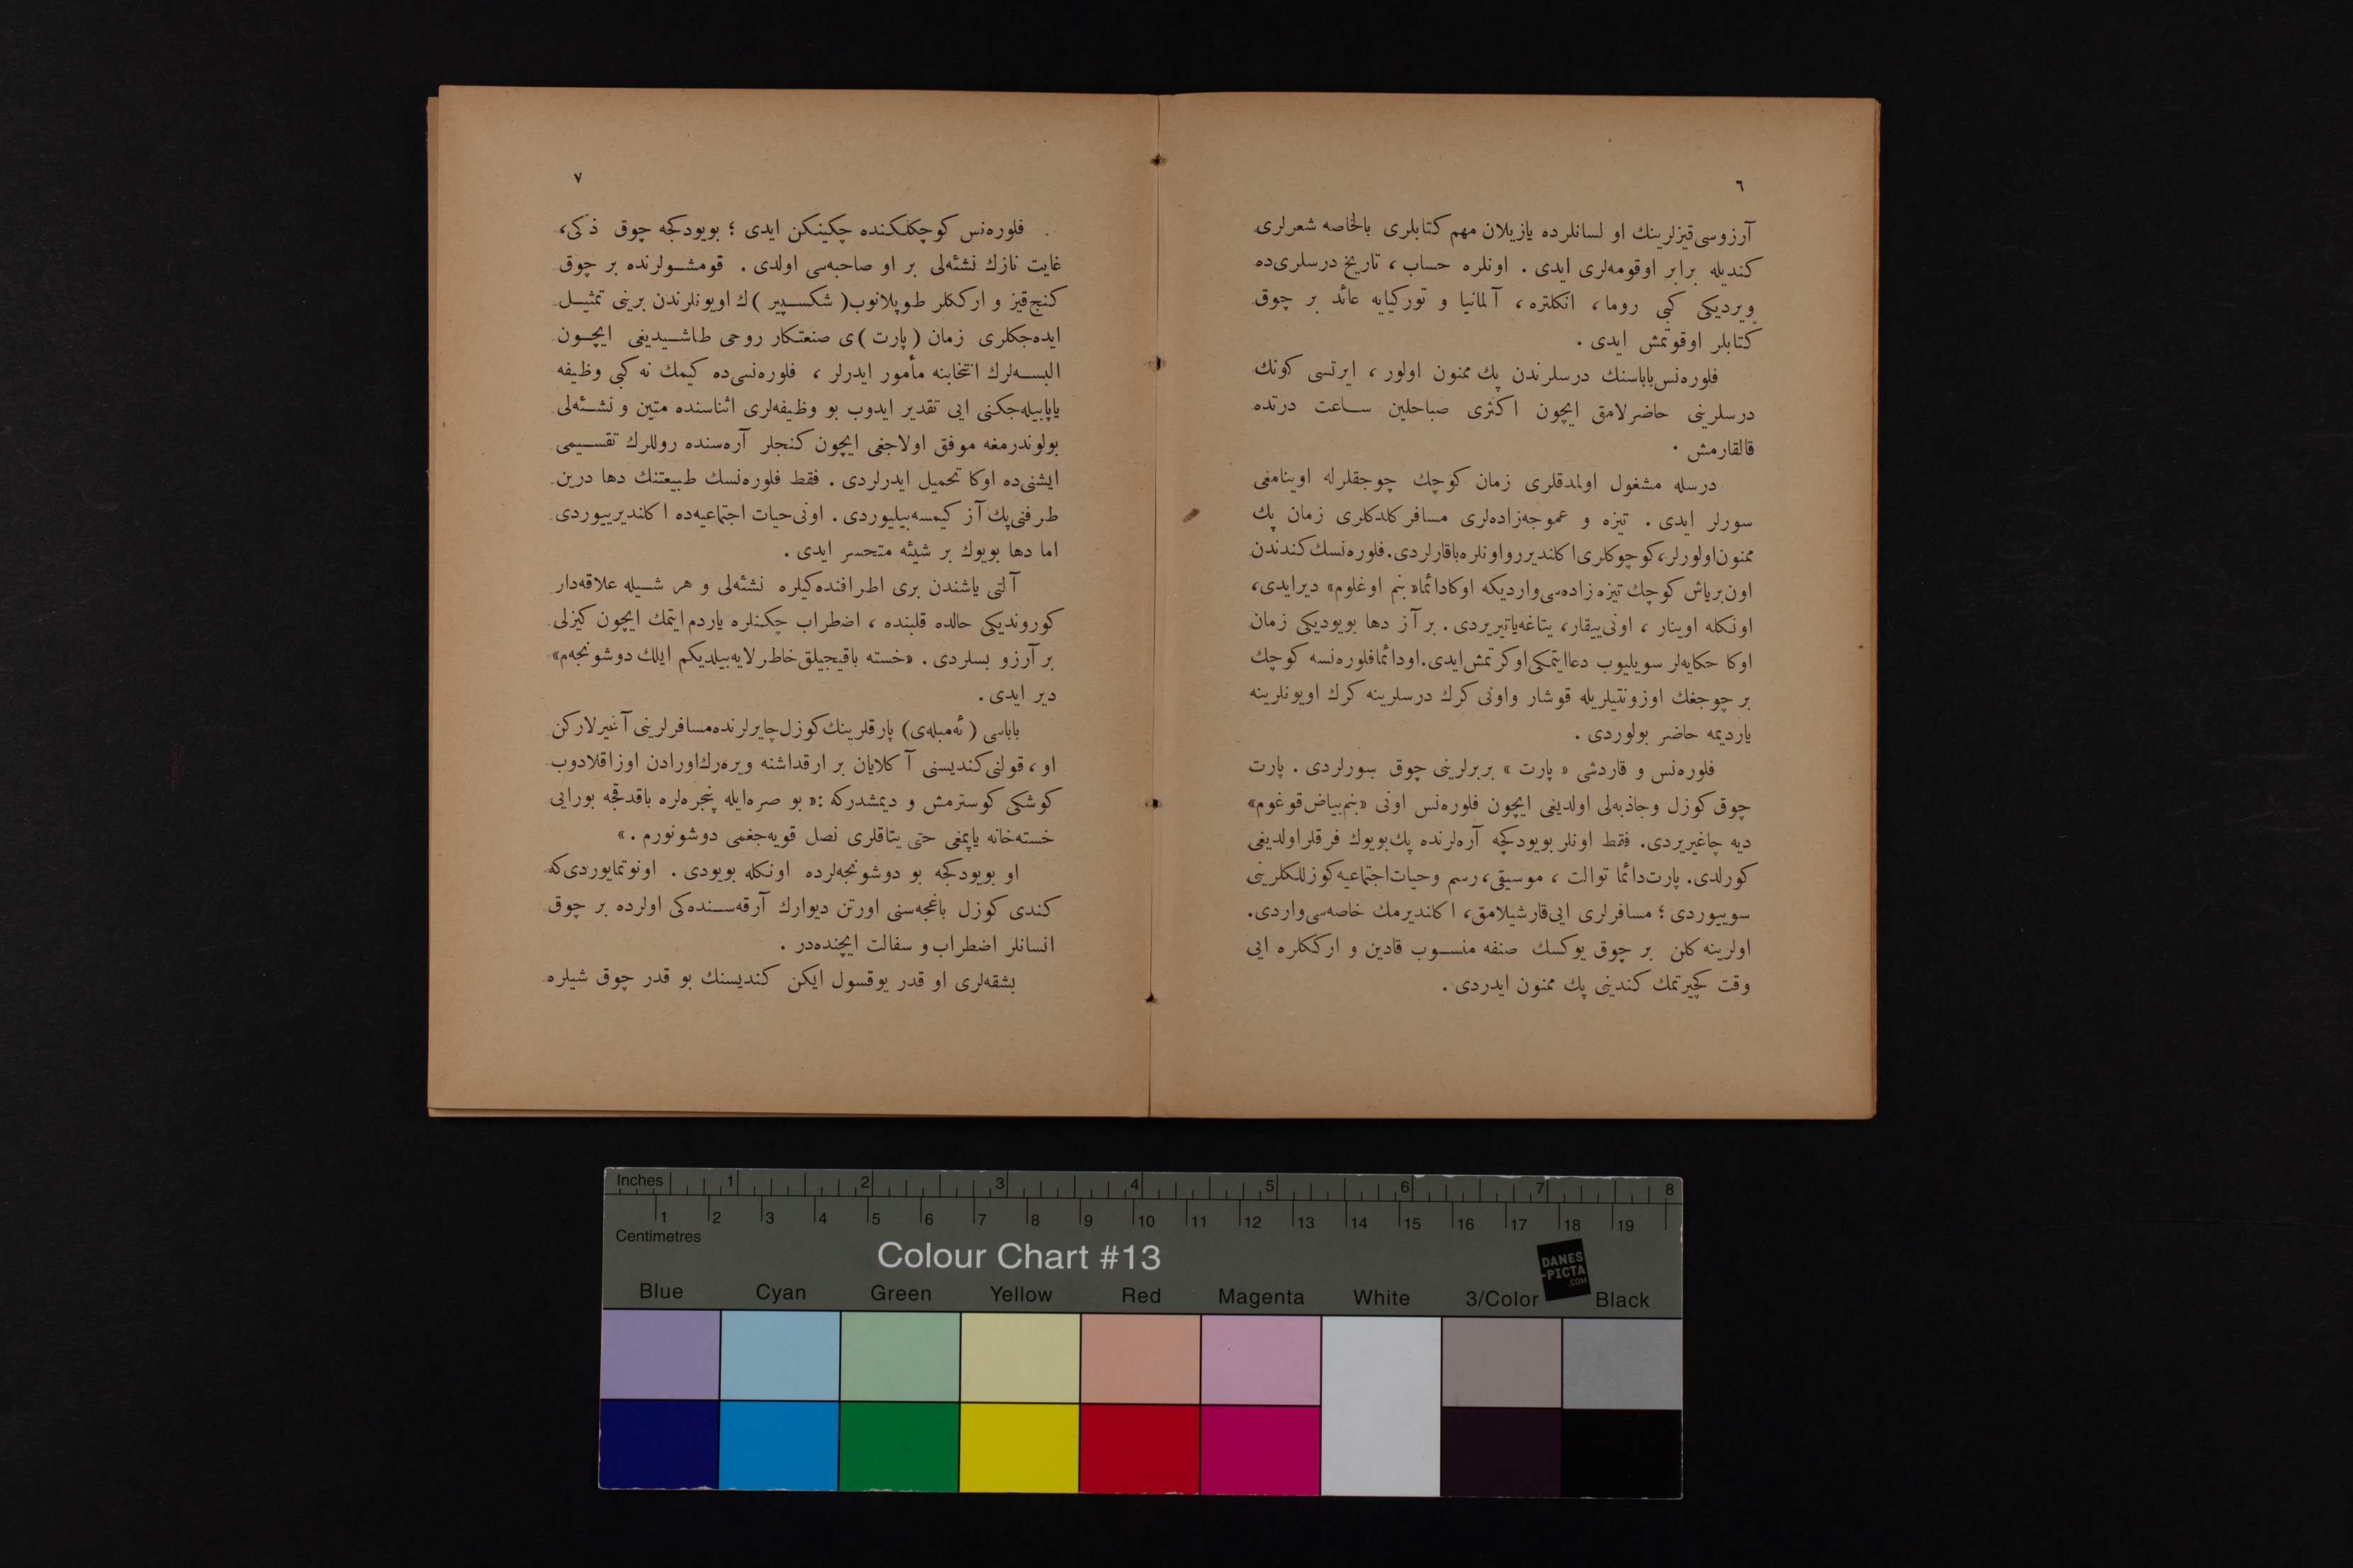 ٦
آرزوسی قیزلرینك او لسانلرده یازیلان مهم كتابلری بالخاصه شعرلری
كندیله برابر اوقومه‌لری ایدی . اونلره حساب ، تاریخ درسلری‌ده
ویردیكی كبی روما ، انكلتره ، آلمانیا و توركیایه عائد بر چوق
كتابلر اوقوتمش ایدی .
فلوره‌نس باباسنك درسلرندن پك ممنون اولور ، ایرتسی كونك
درسلرینی حاضرلامق ایچون اكثری صباحلین ساعت درتده
قالقارمش .
درسله مشغول اولمدقلری زمان كوچك چوجقلرله اوینامغی
سورلر ایدی . تیزه و عموجه‌زاده‌لری مسافر كلدكلری زمان پك
ممنون اولورلر ، كوچوكلری اكلندیررو اونلره باقارلردی . فلوره‌نسك كندندن
اون بر یاش كوچك تیزه زاده‌سی واردیكه اوكا دائما « بنم اوغلوم » دیر ایدی ،
اونكله اوینار ، اونی ییقار ، یتاغه یاتیریردی . بر آز دها بویودیكی زمان
اوكا حكایه‌لر سویلیوب دعا ایتمكی اوكرتمش ایدی . اودائما فلوره‌نسه كوچك
بر چوجغك اوزونتیلریله قوشار واونی كرك درسلرینه كرك اویونلرینه
یاردیمه حاضر بولوردی .
فلوره‌نس و قاردشی « پارت » بربرلرینی چوق سورلردی . پارت
چوق كوزل وجاذبه‌لی اولدیغی ایچون فلوره‌نس اونی « بنم بیاض قوغوم »
دیه چاغیریردی . فقط اونلر بویودكچه آره‌لرنده پك بویوك فرقلر اولدیغی
كورلدی . پارت دائما توالت ، موسیقی ، رسم وحیات اجتماعیه كوزللكلرینی
سوییوردی ؛ مسافرلری ایی قارشیلامق ، اكلندیرمك خاصه‌سی واردی .
اولرینه كلن بر چوق یوكسك صنفه منسوب قادین و ارككلره ایی
وقت كچیرتمك كندینی پك ممنون ایدردی .
٧
فلوره‌نس كوچكلكنده چكینكن ایدی ؛ بویودكجه چوق ذكی ،
غایت نازك نشئه‌لی بر او صاحبه‌سی اولدی . قومشولرنده بر چوق
كنج قیز و ارككلر طوپلانوب ( شكسپیر ) ك اویونلرندن برینی تمثیل
ایده‌جكلری زمان ( پارت ) ی صنعتكار روحی طاشیدیغی ایچون
البسه‌لرك انتخابنه مأمور ایدرلر ، فلوره‌نسی‌ده كیمك نه كبی وظیفه
یاپابیله‌جكنی ایی تقدیر ایدوب بو وظیفه‌لری اثناسنده متین و نشئه‌لی
بولوندرمغه موفق اولاجغی ایچون كنجلر آره‌سنده روللرك تقسیمی
ایشنی‌ده اوكا تحمیل ایدرلردی . فقط فلوره‌نسك طبیعتنك دها درین
طرفنی پك آز كیمسه بیلیوردی . اونی حیات اجتماعیه‌ده اكلندیرییوردی
اما دها بویوك بر شیئه متحسر ایدی .
آلتی یاشندن بری اطرافنده‌كیلره نشئه‌لی و هر شیله علاقه‌دار
كوروندیكی حالده قلبنده ، اضطراب چكنلره یاردم ایتمك ایچون كیزلی
بر آرزو بسلردی . « خسته باقیجیلق خاطرلایه‌بیلدیكم ایلك دوشونجه‌م »
دیر ایدی .
باباسی ( ئه‌مبله‌ی ) پارقلرینك كوزل چایرلرنده مسافرلرینی آغیرلاركن
او ، قولنی كندیسنی آكلایان بر ارقداشنه ویره‌رك اورادن اوزاقلادوب
كوشكی كوسترمش و دیمشدركه : « بو صره‌ایله پنجره‌لره باقدقجه بورایی
خسته‌خانه یاپمغی حتی یتاقلری نصل قویه‌جغمی دوشونورم . »
او بویودكجه بو دوشونجه‌لرده اونكله بویودی . اونوتمایوردی كه
كندی كوزل باغجه‌سنی اورتن دیوارك آرقه‌سنده‌كی اولرده بر چوق
انسانلر اضطراب و سفالت ایچنده‌در .
بشقه‌لری او قدر یوقسول ایكن كندیسنك بو قدر چوق شیلره
Inches 1 2 3 4 5 6 7 8
1 2 3 4 5 6 7 8 9 10 11 12 13 14 15 16 17 18 19
Centimetres
Colour Chart #13
DANES
-PICTA
.COM
Blue Cyan Green Yellow Red Magenta White 3/Color Black